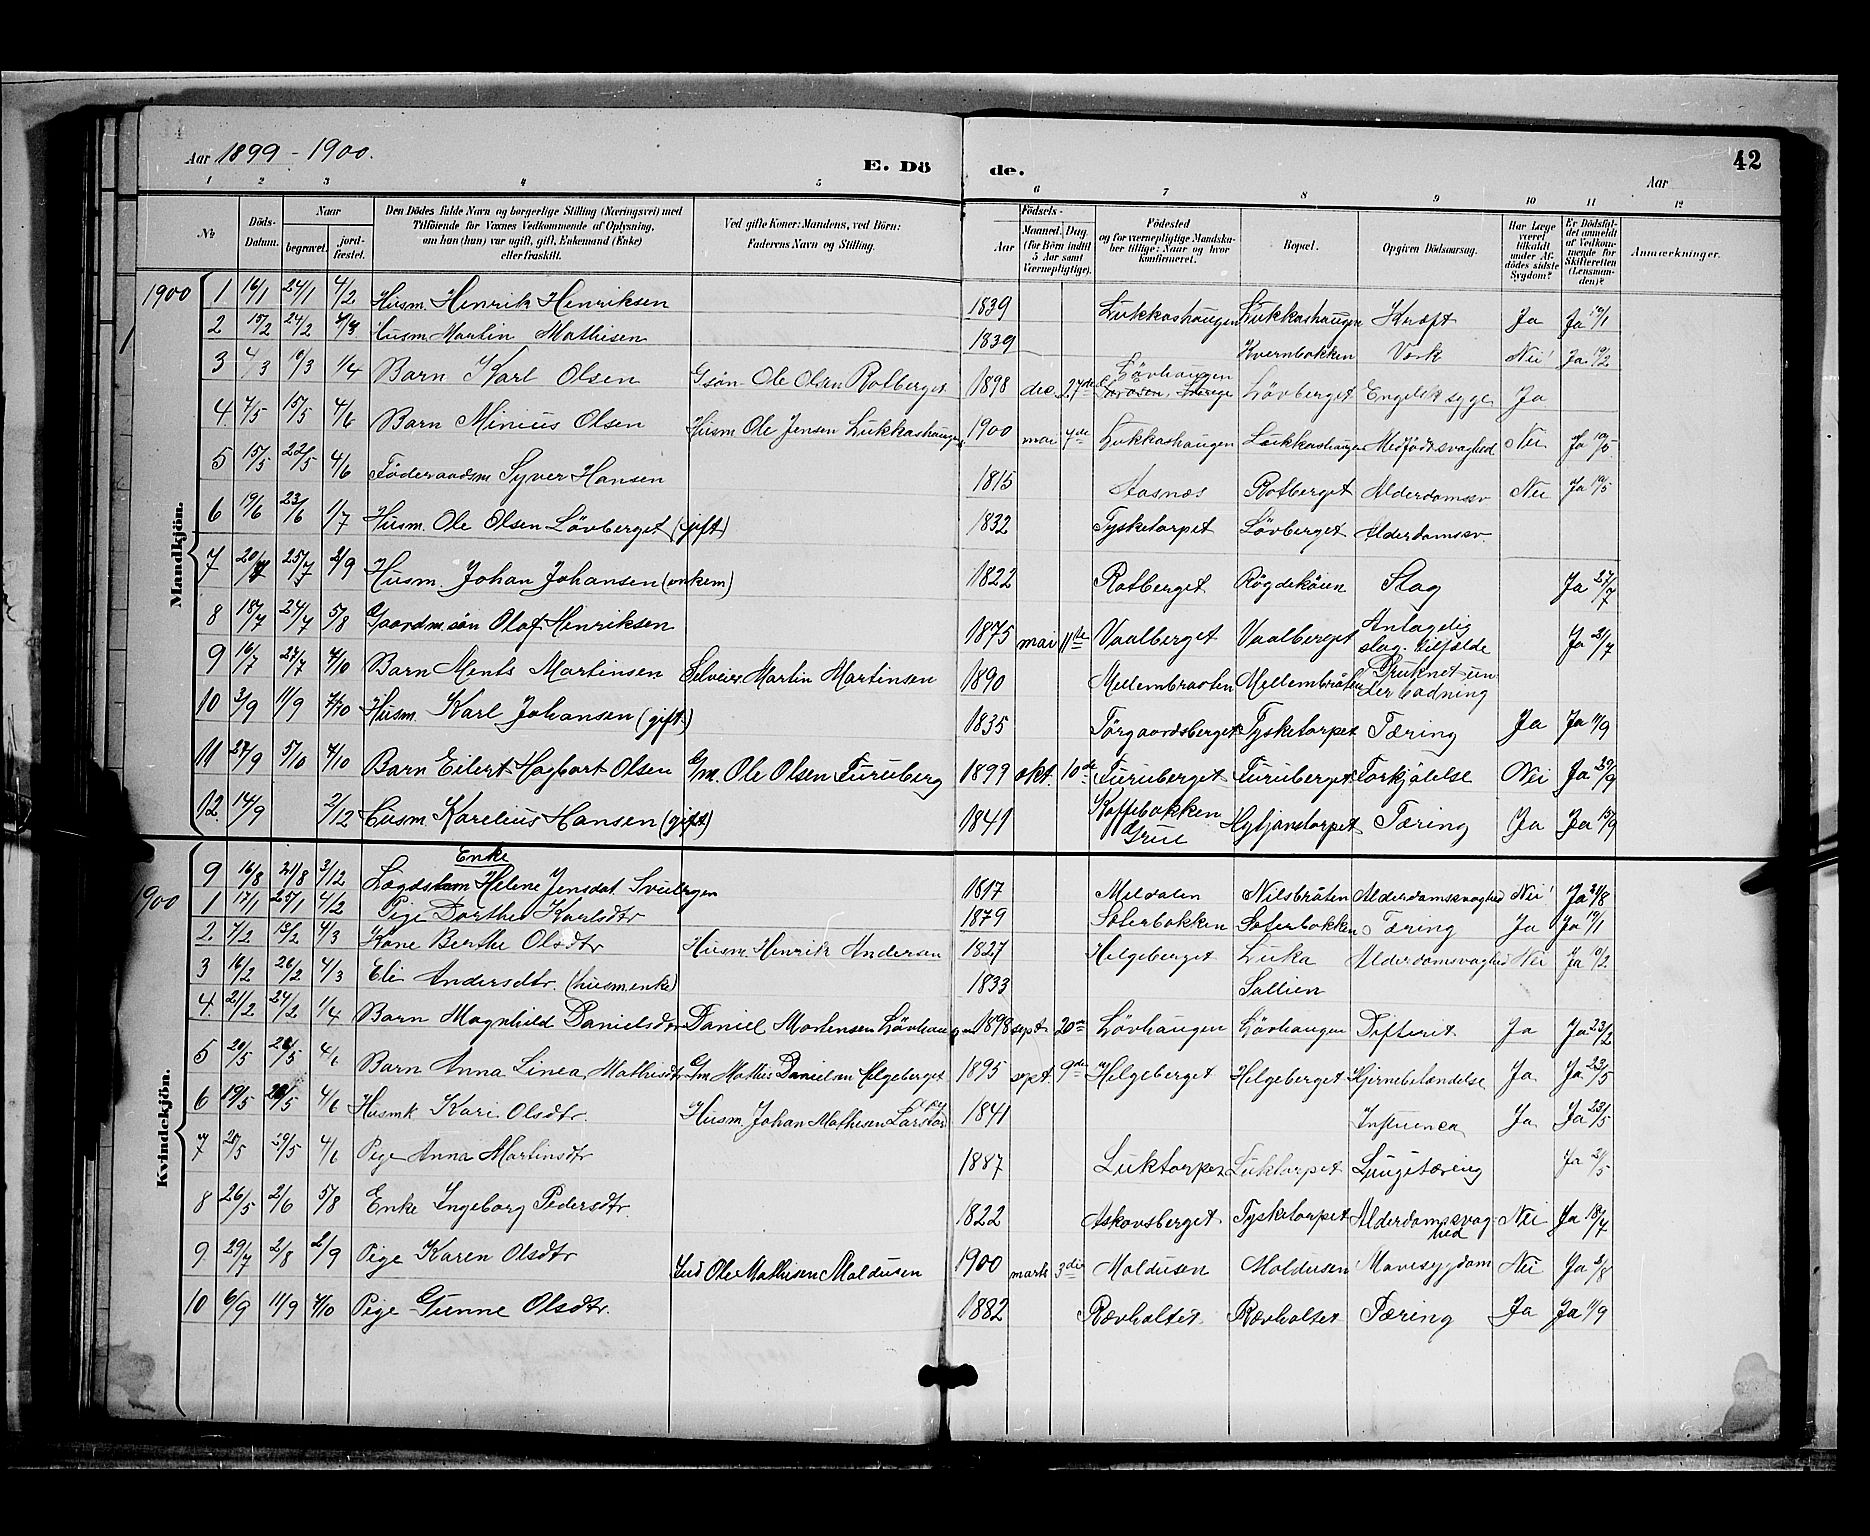 Aar 1899 - 1900.
E. Dö
de.
Aar
42
1 2 3 4 5 6 7 8 9 10 11 12
No
Döds-Datum.
Naar
begravet.
jord-fæstet.
Den Dödes fulde Navn og borgerlige Stilling (Næringsvei) med
Tilföiende for Voxnes Vedkommende af Oplysning,
om han (hun) var ugift, gift, Enkemand (Enke)
eller fraskilt.
Ved gifte Koner: Mandens, ved Börn:
Faderens Navn og Stilling.
Födsels-
Aar
Maaned. Dag.
(for Börn indtil 5 Aar samt Værnepligtige).
Födested
og for værnepligtige Mandska-
ber tillige: Naar og hvor
konfirmeret.
Bopæl.
Opgiven Dödsaarsag.
Har Læge været tilkaldt under Af-dödes sidste Sygdom?
Er Dödsfal-det anmeldt af Vedkom-mende for Skifteretten (Lensman-den)?
Anmærkninger.
Mandkjön.
1900 1. 16/1 24/1 4/2 Husm. Henrik Henriksen 1839 Lukkashaugen Lukkashaugen Kræft Ja Ja 18/1
2 15/2 24/2 4/3 Husm. Martin Mathisen 1839 Kvernbakken Værk Nei Ja 19/2
3 4/3 10/3 1/4 Barn Karl Olsen Gsøn Ole Olsen Rotberget 1898 dec. 27de Lövhaugen Lövberget Engelsk syge Ja
4. 7/5 15/5 4/6 Barn Minius Olsen Husm Ole Jensen Lukkashaugen 1900 mai 7de Lukkashaugen Lukkashaugen Medfödt svaghed Nei Ja 10/5
5 15/5 22/5 4/6 Föderaadsm Syver Hansen 1815 Aasnæs Rotberget Alderdomssv Nei Ja 19/5
6 19/6 23/6 1/7 Husm. Ole Olsen Lövberget (gift) 1832 Tysketorpet Lövberget Alderdomssv.
7 20/7 25/7 2/9 Husm. Johan Johansen (enkem) 1822 Rotberget Rögdekåien Slag Ja 27/7
8 18/7 24/7 5/8 Gaardm. sön Olaf Henriksen 1875 mai 11te Vaalberget Vaalberget Antagelig slag. tilfælde Ja 21/7
9 16/7 27/7 4/10 Barn Ments Martinsen Selveier Martin Martinsen 1890 Mellembraaten Mellembråten Druknet under badning
10 3/9 11/9 7/10 Husm. Karl Johansen (gift) 1835 Törgaardsberget Tysketorpet Tæring Ja Ja 11/9
11 27/9 5/10 4/10 Barn Eilert Hagbart Olsen Gm. Ole Olsen Furuberg 1899 okt. 10de Furuberget Furuberget Forkjölelse Nei Ja 29/9
12. 14/9 2/12 Husm. Karelius Hansen (gift) 1841 Kaffebakken Grue Hytjanstorpet Tæring Ja Ja 15/9
Kvindekjön.
9 16/8 21/8 3/12 Enke Lægdslem Helene Jensdat. 1817 Meldalen Nilsbråten Alderdomssvaghed Nei Ja 21/8
1900 1 17/1 25/1 4/2 Pige Dorthe Karlsdtr 1879 Säterbakken Säterbakken Tæring Ja Ja 19/1
2. 7/2 13/2 4/3 Kone Berthe Olsdtr Husm. Henrik Andersen 1827 Helgeberget Luka Alderdomssvaghed Nei Ja 10/2
3 16/2 26/2 4/3 Eli Andersdtr. (husm.enke) 1833 Sollien
4. 21/2 24/2 1/4 Barn Magnhild Danielsdtr Daniel Mortensen Lövhaugen 1898 sept 20de Lövhaugen Lövhaugen Difterit Ja Ja 23/2
5 20/5 26/5 4/6 Barn Anna Linea Mathisdtr Gm Mathis Danielsen Helgeberget 1895 sept. 9de Helgeberget Helgeberget Hjernebetændelse Ja Ja 23/5
6 19/5 28/5 4/6 Husmk Kari Olsdtr. Husm. Johan Mathisen 1841 Influenca Ja Ja 23/5
7 20/5 29/5 4/6 Pige Anna Martinsdtr 1887 Luktorpet Luktorpet Lungetæring Ja 21/5
8 26/5 2/6 5/8 Enke Ingeborg Pedersdtr. 1822 Askovsberget Tysketorpet Alderdomssvaghed Nei Ja 18/7
9. 29/7 2/8 2/9 Pige Karen Olsdtr Ole Mathisen Maldusen 1900 marts 3die Maldusen Maldusen Mavesygdom Nei Ja 3/8
10 6/9 11/9 4/10 Pige Gunne Olsdtr. 1882 Rævholtet Rævholtet Tæring Ja Ja 11/9